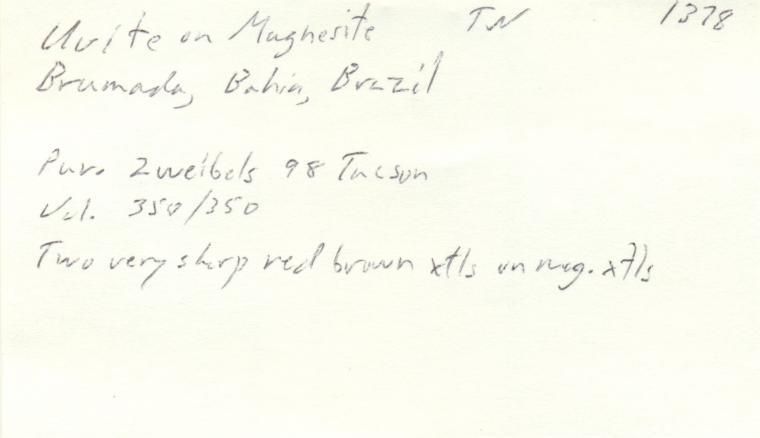 Uvite on Magnesite TN 1378
Brumada, Bahia, Brazil
Pur. Zweibels 98 Tucson
Val. 350/350
Two very sharp red brown xtls on mag. xtls